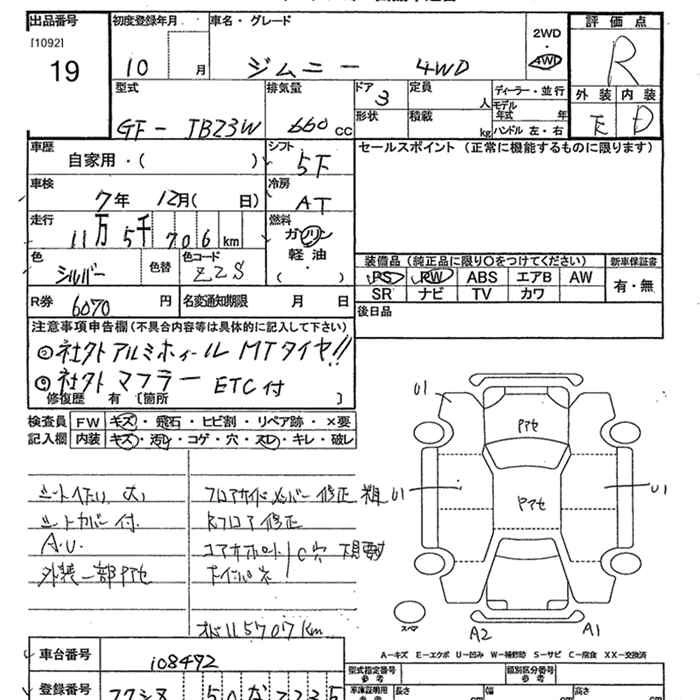 出品番号 初度登録年月 車名・グレード 評価点
[1092] 2WD
19 10 月 ジムニー 4WD ・ R
4WD
型式 排気量 ドア 3 定員 人 ディーラー・並行 外装 内装
GF- JB23W 660 CC 形状 積載 kg モデル年式 年 E D
ハンドル 左・右
車歴 自家用・( ) シフト 5F セールスポイント (正常に機能するものに限ります)
車検 7年 12月( 日) 冷房 AT
走行 11万 5千 706 km 燃料 ガソリン
色 シルバー 色替 色コード ZZS 軽油 ( ) 装備品 (純正品に限り○をつけてください) 新車保証書
PS PW ABS エアB AW 有・無
R券 6070 円 名変通知期限 月 日 SR ナビ TV カワ
注意事項申告欄(不具合内容等は具体的に記入して下さい) 後日品
社外アルミホイール MTタイヤ!!
社外マフラー ETC付
修復歴 有 [箇所 ]
検査員 FW キズ・飛石・ヒビ割・リペア跡・×要
記入欄 内装 キズ・汚レ・コゲ・穴・スレ・キレ・破レ
U1
アセ
シートへたり 大 フロアサイドメンバー修正 U1 アセ U1
シートカバー付 Rフロア修正
A.U. コアサポート
外装一部アセ
オドメ115707km
スペア A2 A1
A-キズ E-エクボ U-凹み W-補修跡 S-サビ C-腐食 XX-交換済
車台番号 108492 型式指定番号 参考 類別区分番号 参考
登録番号 車庫証明用 参考 長さ cm 幅 cm 高さ cm